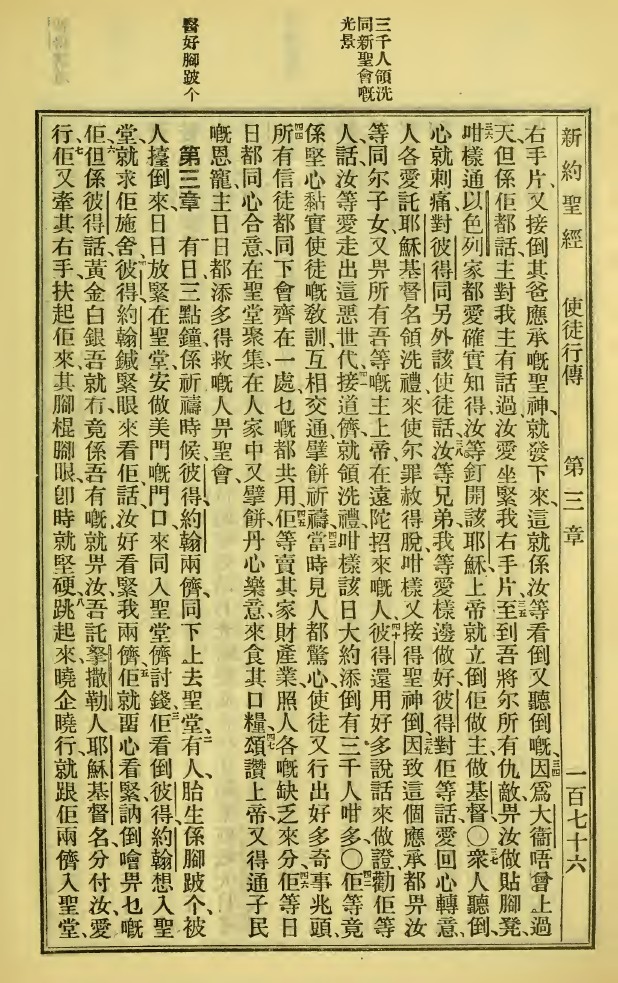 新約聖經 使徒行傳 第三章 一百七十六
三千人領洗
同新聖會嘅
光景
醫好腳跛个
右手片、又接倒其爸應承嘅聖神、就發下來、這就係汝等看倒又聽倒嘅、三四因爲大衞唔曾上過
天、但係佢都話、主對我主有話過、汝愛坐緊我右手片、三五至到吾將尔所有仇敵畀汝做貼腳凳、
三六咁樣通以色列家都愛確實知得、汝等釘開該耶穌、上帝就立倒佢做主做基督〇三七衆人聽倒、
心就刺痛、對彼得同另外該使徒話、汝等兄弟、我等愛樣邊做好、三八彼得對佢等話、愛回心轉意、
人各愛託耶穌基督名領洗禮、來使尔罪赦得脫、咁樣又接得聖神倒、三九因致這個應承都畀汝
等同尔子女、又畀所有吾等嘅主上帝在遠陀招來嘅人、四十彼得還用好多說話來做證、勸佢等
人話、汝等愛走出這惡世代、四一接道儕就領洗禮、咁樣該日大約添倒有三千人咁多〇四二佢等竟
係堅心黏實使徒嘅敎訓、互相交通、擘餅祈禱、四三當時見人都驚心、使徒又行出好多奇事兆頭、
四四所有信徒都同下會齊在一處、乜嘅都共用、四五佢等賣其家財產業、照人各嘅缺乏來分、四六佢等日
日都同心合意在聖堂聚集、在人家中又擘餅、丹心樂意來食其口糧、四七頌讚上帝、又得通子民
嘅恩寵、主日日都添多得救嘅人畀聖會、
第三章 一有日三點鐘、係祈禱時候、彼得約翰兩儕、同下上去聖堂、二有人胎生係腳跛个、被
人擡倒來、日日放緊在聖堂安做美門嘅門口、來同入聖堂儕討錢、三佢看倒彼得約翰想入聖
堂、就求佢施舍、四彼得約翰鍼緊眼來看佢話、汝好看緊我兩儕、五佢就畱心看緊、訥倒噲畀乜嘅
佢、六但係彼得話、黃金白銀吾就冇、竟係吾有嘅就畀汝、吾託拏撒勒人耶穌基督名、分付汝愛
行、七佢又牽其右手扶起佢來、其腳棍腳眼、卽時就堅硬、八跳起來、曉企曉行、就跟佢兩儕入聖堂、